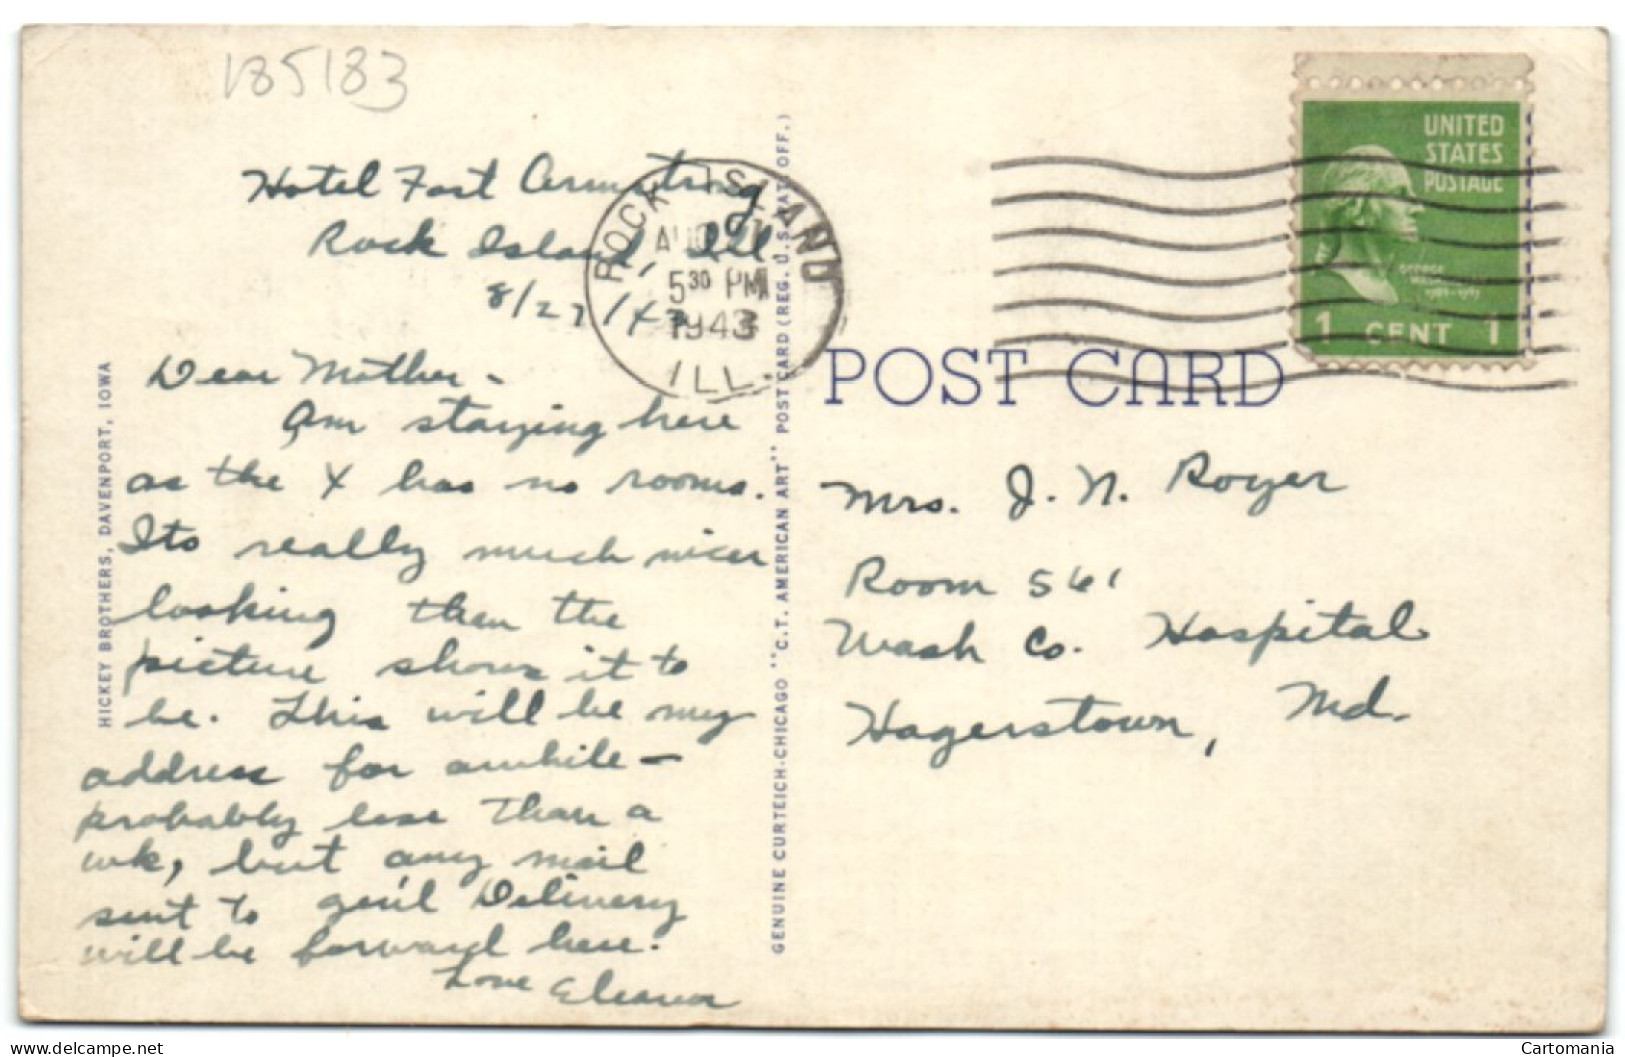 185183
Hotel Fort Armstrong
Rock Island, Ill
8/27/43
ROCK ISLAND
AUG
5 30 PM
1943
ILL.
UNITED
STATES
POSTAGE
GEORGE
WASHINGTON
1 CENT 1
Dear Mother -
Am staying here
as the Y has no rooms.
Its really much nicer
looking then the
picture shows it to
be. This will be my
address for awhile -
probably less than a
wk, but any mail
sent to gen'l Delivery
will be forward here.
Love Eleanor
HICKEY BROTHERS, DAVENPORT, IOWA
GENUINE CURTEICH-CHICAGO "C.T. AMERICAN ART" POST CARD (REG. U.S. PAT. OFF.)
POST CARD
Mrs. J. N. Royer
Room 561
Wash Co. Hospital
Hagerstown, Md.
www.delcampe.net
Cartomania